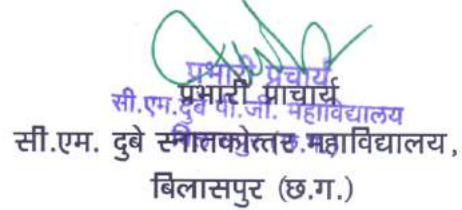 प्रभारी प्राचार्य
सी.एम. दुबे पी.जी. महाविद्यालय
प्रभारी प्राचार्य
सी.एम. दुबे स्नातकोत्तर महाविद्यालय,
बिलासपुर (छ.ग.)